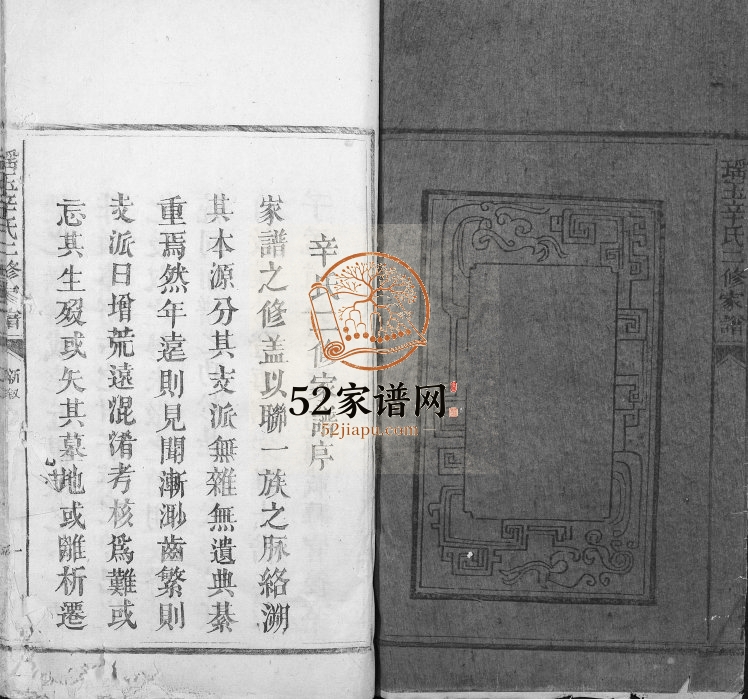 瑤玉辛氏二修家譜
辛氏二修家譜序
家譜之修蓋以聯一族之脈絡溯
其本源分其支派無雜無遺典綦
重焉然年遠則見聞漸渺齒繁則
支派日增荒遠混淆考核爲難或
忘其生歿或失其墓地或離析遷
瑤玉辛氏二修家譜
新敘
一
52家谱网
52jiapu.com